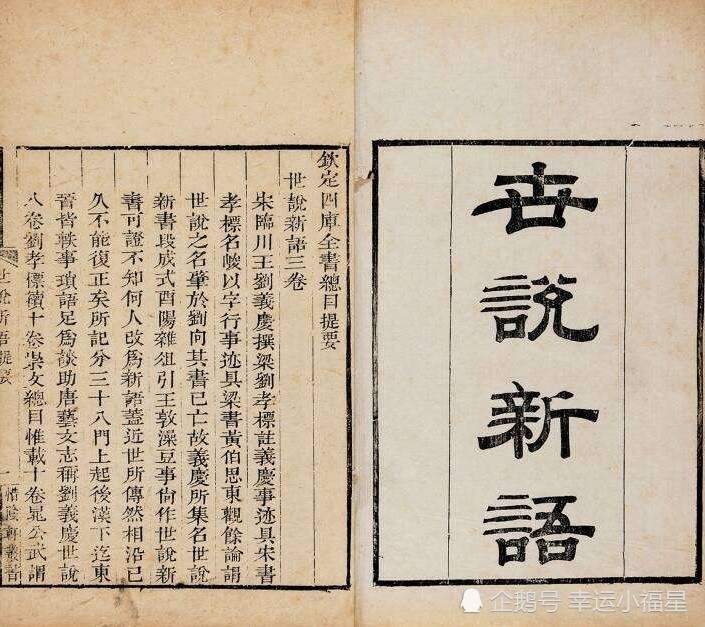 世說新語
欽定四庫全書總目提要
世說新語三卷
宋臨川王劉義慶撰梁劉孝標註義慶事迹具宋書
孝標名峻以字行事迹具梁書黃伯思東觀餘論謂
世說之名肇於劉向其書已亡故義慶所集名世說
新書段成式酉陽雜俎引王敦澡豆事尙作世說新
書可證不知何人改爲新語蓋近世所傳然相沿已
久不能復正矣所記分三十八門上起後漢下迄東
晉皆軼事瑣語足爲談助唐藝文志稱劉義慶世說
八卷劉孝標續十卷崇文總目惟載十卷晁公武謂
世說新語提要
一
惜陰軒叢書
企鹅号 幸运小福星